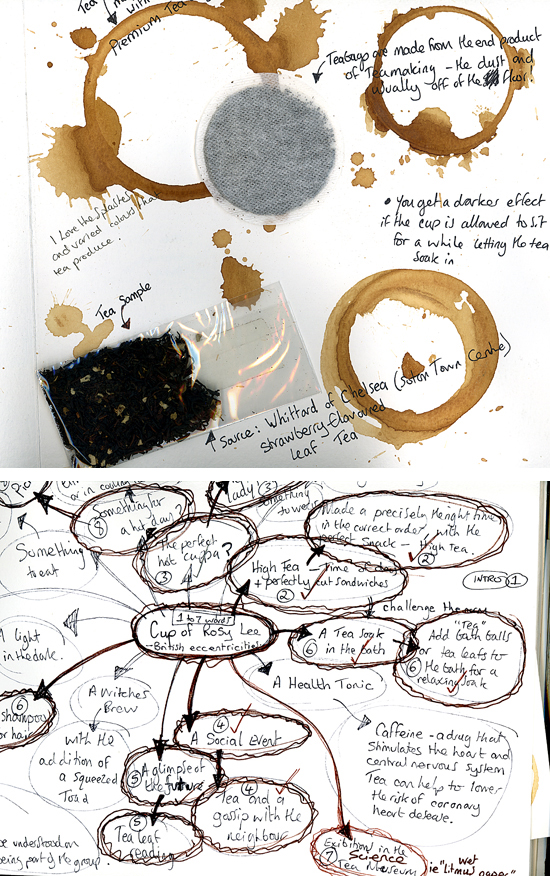 Tea
Premium Tea
Teabags are made from the end product
of Teamaking - the dust and
usually off of the floor.
I Love the splatter
and varied colours that
tea produce.
• You get a darker effect
if the cup is allowed to sit
for a while letting the tea
soak in
Tea Sample
Source: Whittard of Chelsea (Soton Town Centre)
Strawberry flavoured
leaf Tea
Something for
a his day?
8
lady? 3
Something
to wear
Made a precisely the right time
in the correct order with the
perfect Snack - High Tea.
2
Something
to eat
The perfect
hot cuppa?
3
High Tea - Time of day
+ perfectly cut sandwiches
2
INTRO 1
challenge the
A light
in the dark.
1 to 7 words
Cup of Rosy Lee
British eccentricities
A Tea Soak
6 in the bath
"Tea"
Add bath balls
or tea leafs to
6 the bath for a
relaxing soak
6
shampoo
for hair
A Witches
Brew
A Health Tonic
with the
addition of
a squeezed
Toad
4
A Social Event
Caffeine - a drug that
Stimulates the heart and
central nervous system
Tea can help to lower
the risk of coronary
heart desease.
5 A glimpse of
the future
4
Tea and a
gossip with the
neighbour
5
Tea leaf
reading
Exibition in the
7 Science
Tea Museum
wet
ie "litmus paper"
be understood on
being part of the group.